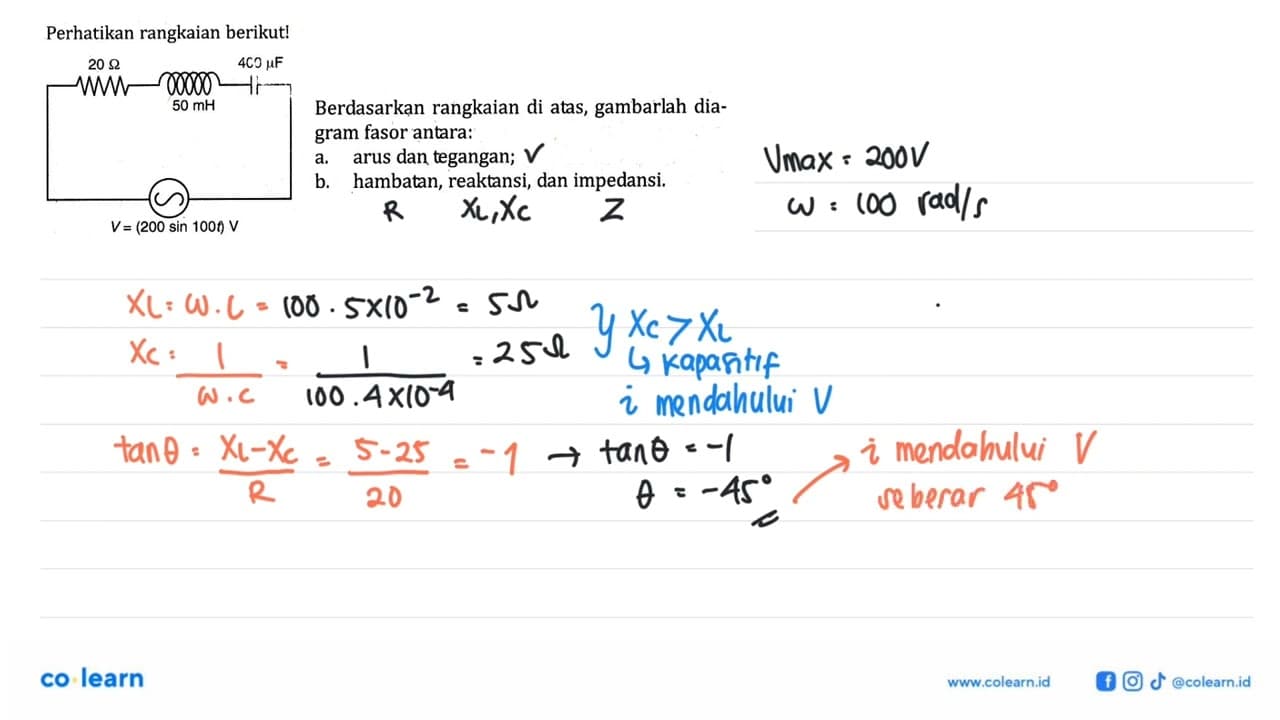 Perhatikan rangkaian berikut!
20 Ω
400 μF
50 mH
V = (200 sin 100t) V
Berdasarkan rangkaian di atas, gambarlah dia-
gram fasor antara:
a. arus dan tegangan; ✓
b. hambatan, reaktansi, dan impedansi.
R XL, XC Z
Vmax = 200V
ω = 100 rad/s
XL = ω . L = 100 . 5x10⁻² = 5Ω
XC = 1/ω.C = 1/100 . 4x10⁻⁴ = 25Ω
} XC > XL
↳ kapasitif
i mendahului V
tanθ = XL-XC/R = 5-25/20 = -1 → tanθ = -1
θ = -45°
i mendahului V
sebesar 45°
co·learn
www.colearn.id
@colearn.id